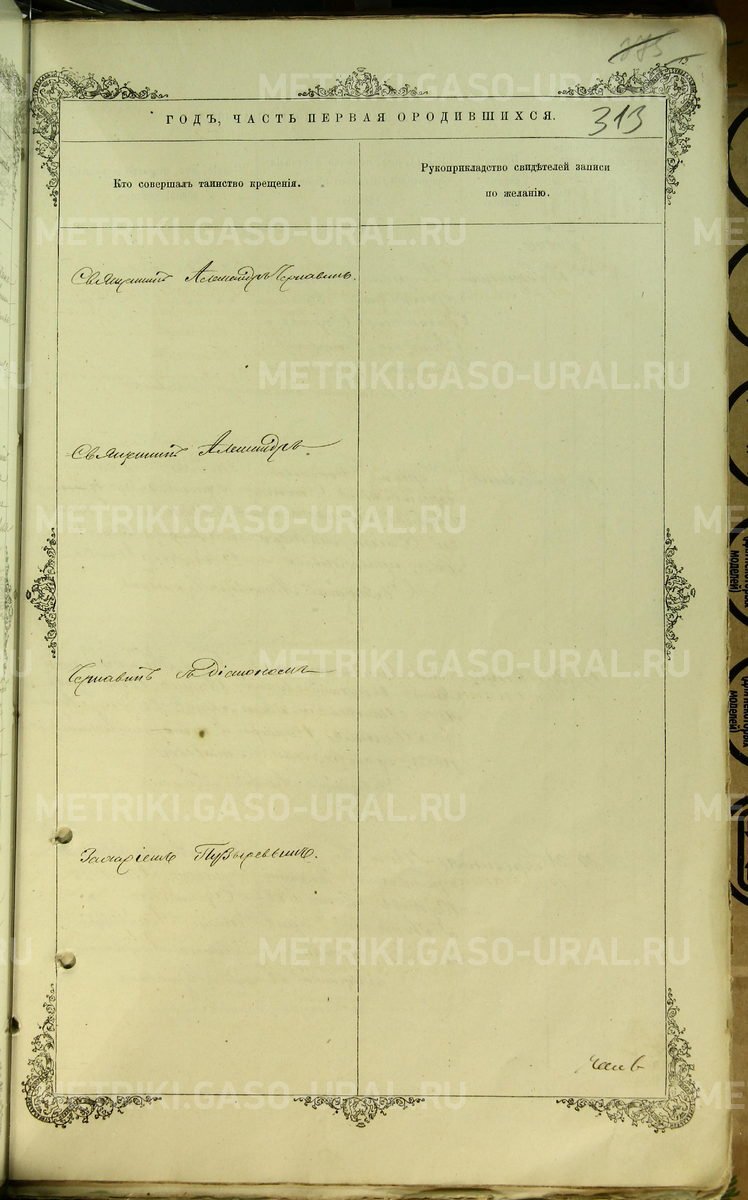 313
ГОДЪ, ЧАСТЬ ПЕРВАЯ О РОДИВШИХСЯ.
Кто совершалъ таинство крещенія.
Рукоприкладство свидѣтелей записи
по желанію.
Священникъ Александръ Чернавинъ.
Священникъ Александръ
Чернавинъ съ Діакономъ
Захаріемъ Пузыревымъ.
METRIKI.GASO-URAL.RU
моделей)
моделей)